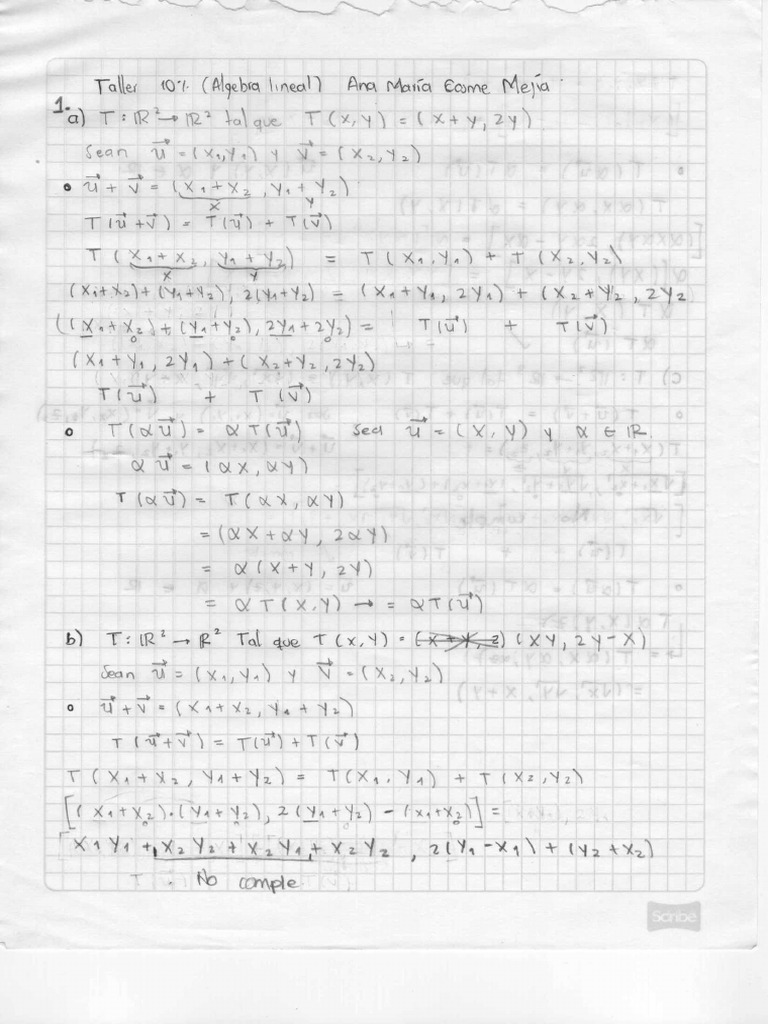 Taller 10% (Algebra lineal) Ana María Cosme Mejía
1.
a) T: IR² → IR² tal que T(x,y) = (x+y, 2y)
Sean u⃗ = (x₁,y₁) y v⃗ = (x₂,y₂)
• u⃗ + v⃗ = (x₁+x₂, y₁+y₂)
x y
T(u⃗+v⃗) = T(u⃗) + T(v⃗)
T(x₁+x₂, y₁+y₂) = T(x₁,y₁) + T(x₂,y₂)
x y
(x₁+x₂)+(y₁+y₂), 2(y₁+y₂) = (x₁+y₁, 2y₁) + (x₂+y₂, 2y₂
((x₁+x₂)+(y₁+y₂), 2y₁+2y₂) = T(u⃗) + T(v⃗)
(x₁+y₁, 2y₁)+(x₂+y₂, 2y₂)
T(u⃗) + T(v⃗)
• T(αu⃗) = αT(u⃗) sea u⃗ = (x,y) y α ∈ IR.
αu⃗ = (αx, αy)
T(αu⃗) = T(αx, αy)
= (αx+αy, 2αy)
= α(x+y, 2y)
= αT(x,y) → = αT(u⃗)
b) T: IR² → IR² Tal que T(x,y) = (x+y, 2) (xy, 2y-x)
Sean u⃗ = (x₁,y₁) y v⃗ = (x₂,y₂)
• u⃗+v⃗ = (x₁+x₂, y₁+y₂)
T(u⃗+v⃗) = T(u⃗)+T(v⃗)
T(x₁+x₂, y₁+y₂) = T(x₁,y₁) + T(x₂,y₂)
[(x₁+x₂)·(y₁+y₂), 2(y₁+y₂) - (x₁+x₂)] =
[x₁y₁ + x₂y₂ + x₂y₁ + x₂y₂, 2(y₁-x₁) + (y₂+x₂)
No comple
Scribe